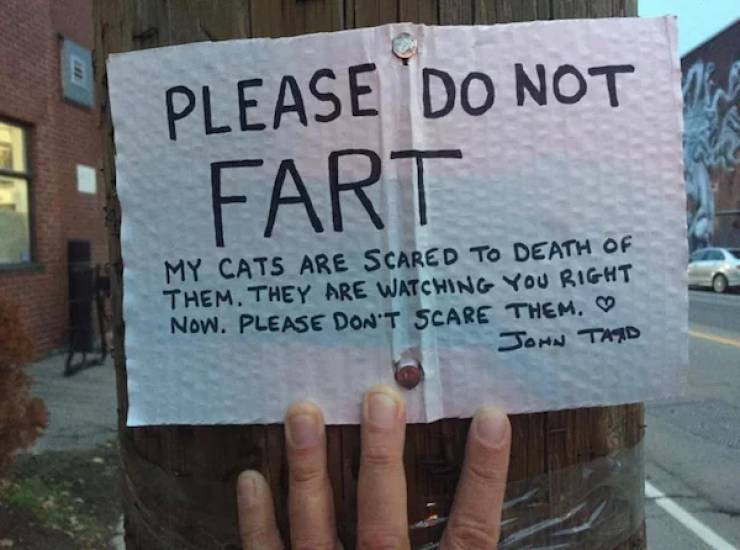 PLEASE DO NOT
FART
MY CATS ARE SCARED TO DEATH OF
THEM. THEY ARE WATCHING YOU RIGHT
NOW. PLEASE DON'T SCARE THEM. ♡
JOHN TARD